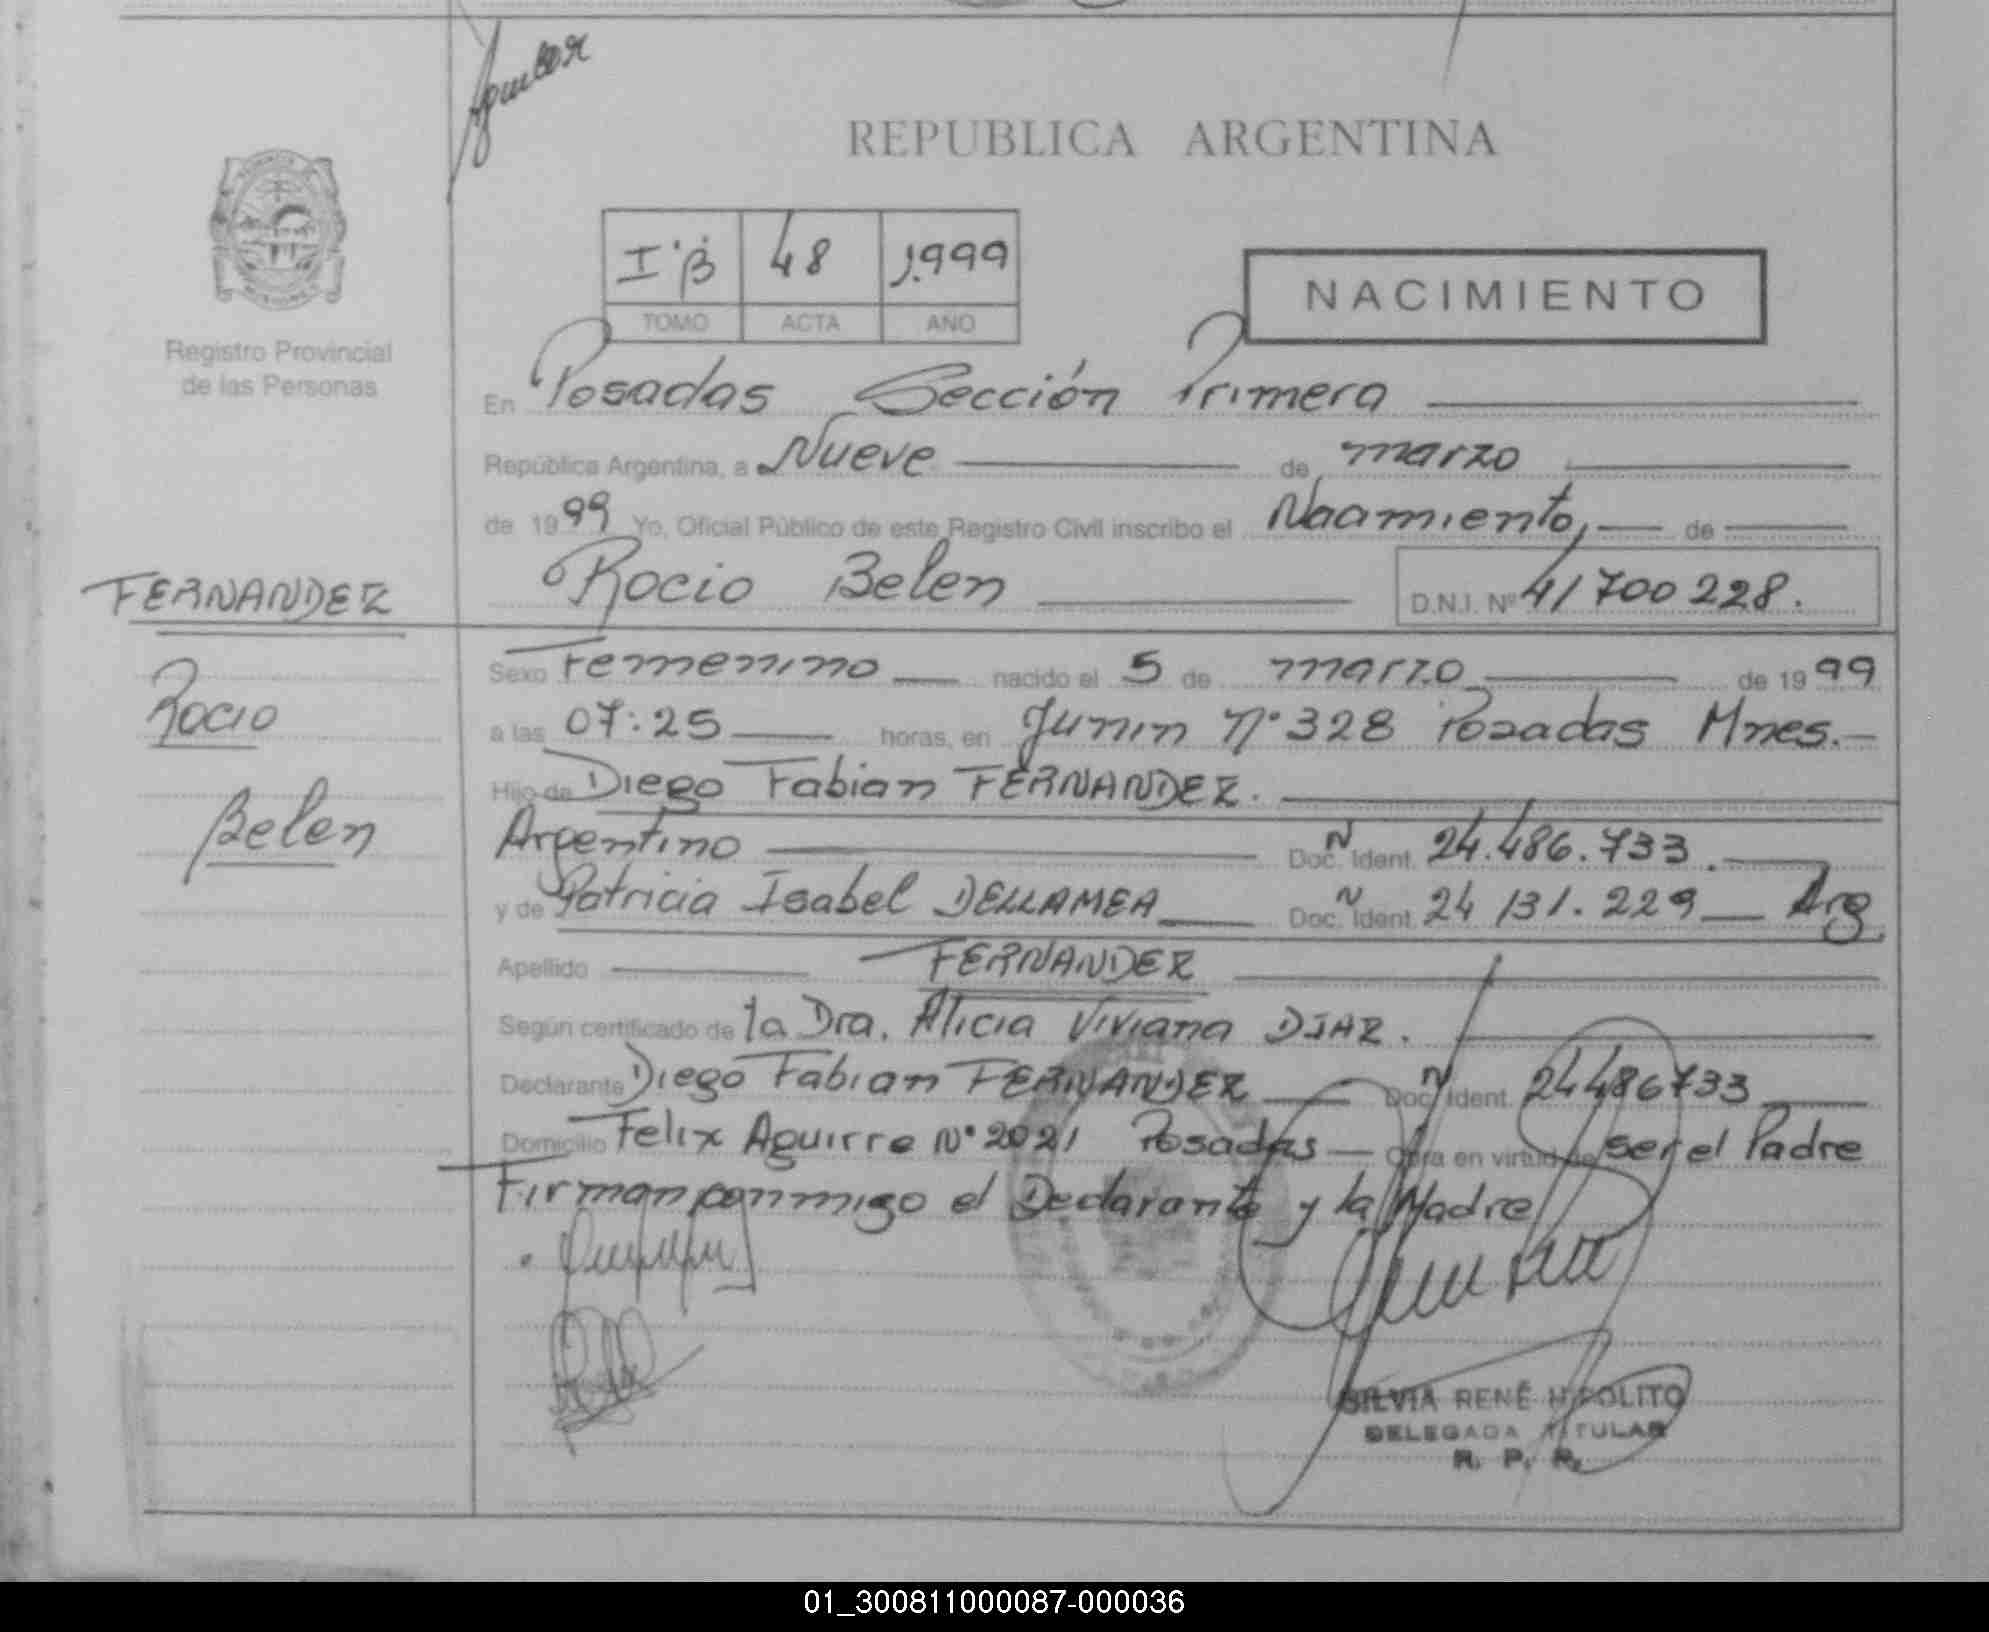 REPUBLICA ARGENTINA
I°B 48 1.999
TOMO ACTA AÑO
NACIMIENTO
Registro Provincial
de las Personas
En Posadas Sección Primera
República Argentina, a Nueve de marzo
de 1999 Yo, Oficial Público de este Registro Civil inscribo el Nacimiento, de
FERNANDEZ
Rocio Belen D.N.I. Nº 41700228.
Rocio
Belen
Sexo Femenino nacido el 5 de marzo de 1999
a las 07:25 horas, en Junin N°328 Posadas Mnes.
Hijo de Diego Fabian FERNANDEZ.
Argentino Doc. Ident. N 24.486.733.
y de Patricia Isabel DELLAMEA Doc. Ident. N 24 131.229 Arg
Apellido FERNANDEZ
Según certificado de la Dra. Alicia Viviana DIAZ.
Declarante Diego Fabian FERNANDEZ Doc. Ident. N 24486733
Domicilio Felix Aguirre N° 2021 Posadas Obra en virtud de ser el Padre
Firman conmigo el Declarante y la Madre
SILVIA RENÉ HIPOLITO
DELEGADA TITULAR
R. P. P.
01_300811000087-000036